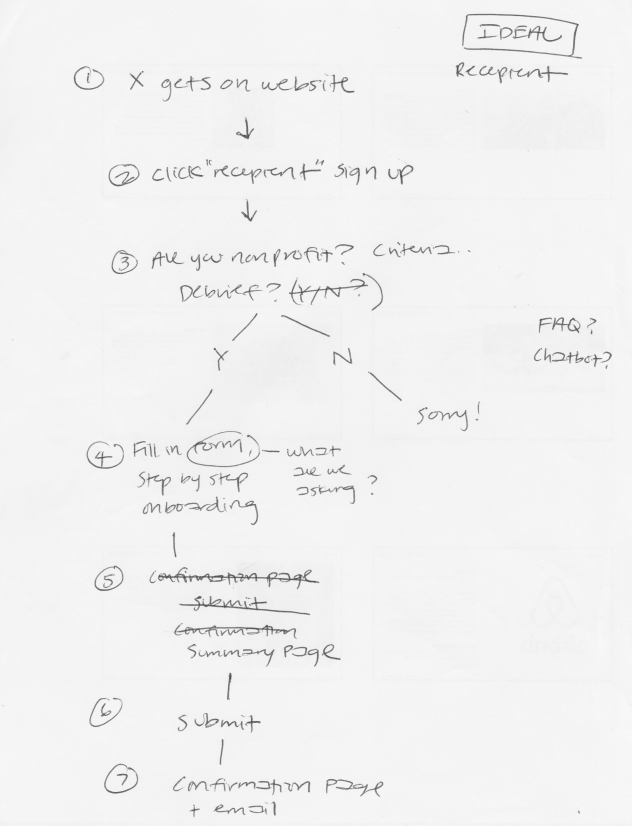 IDEAL
Recepient
① X gets on website
↓
② click "recepient" sign up
↓
③ Are you nonprofit? Criteria..
Debrief? (Y/N?)
FAQ?
Chatbot?
Y N
Sorry!
④ Fill in form, — what
Step by step are we
onboarding asking?
⑤ Confirmation page
Submit
Confirmation
Summary page
⑥ Submit
⑦ Confirmation page
+ email